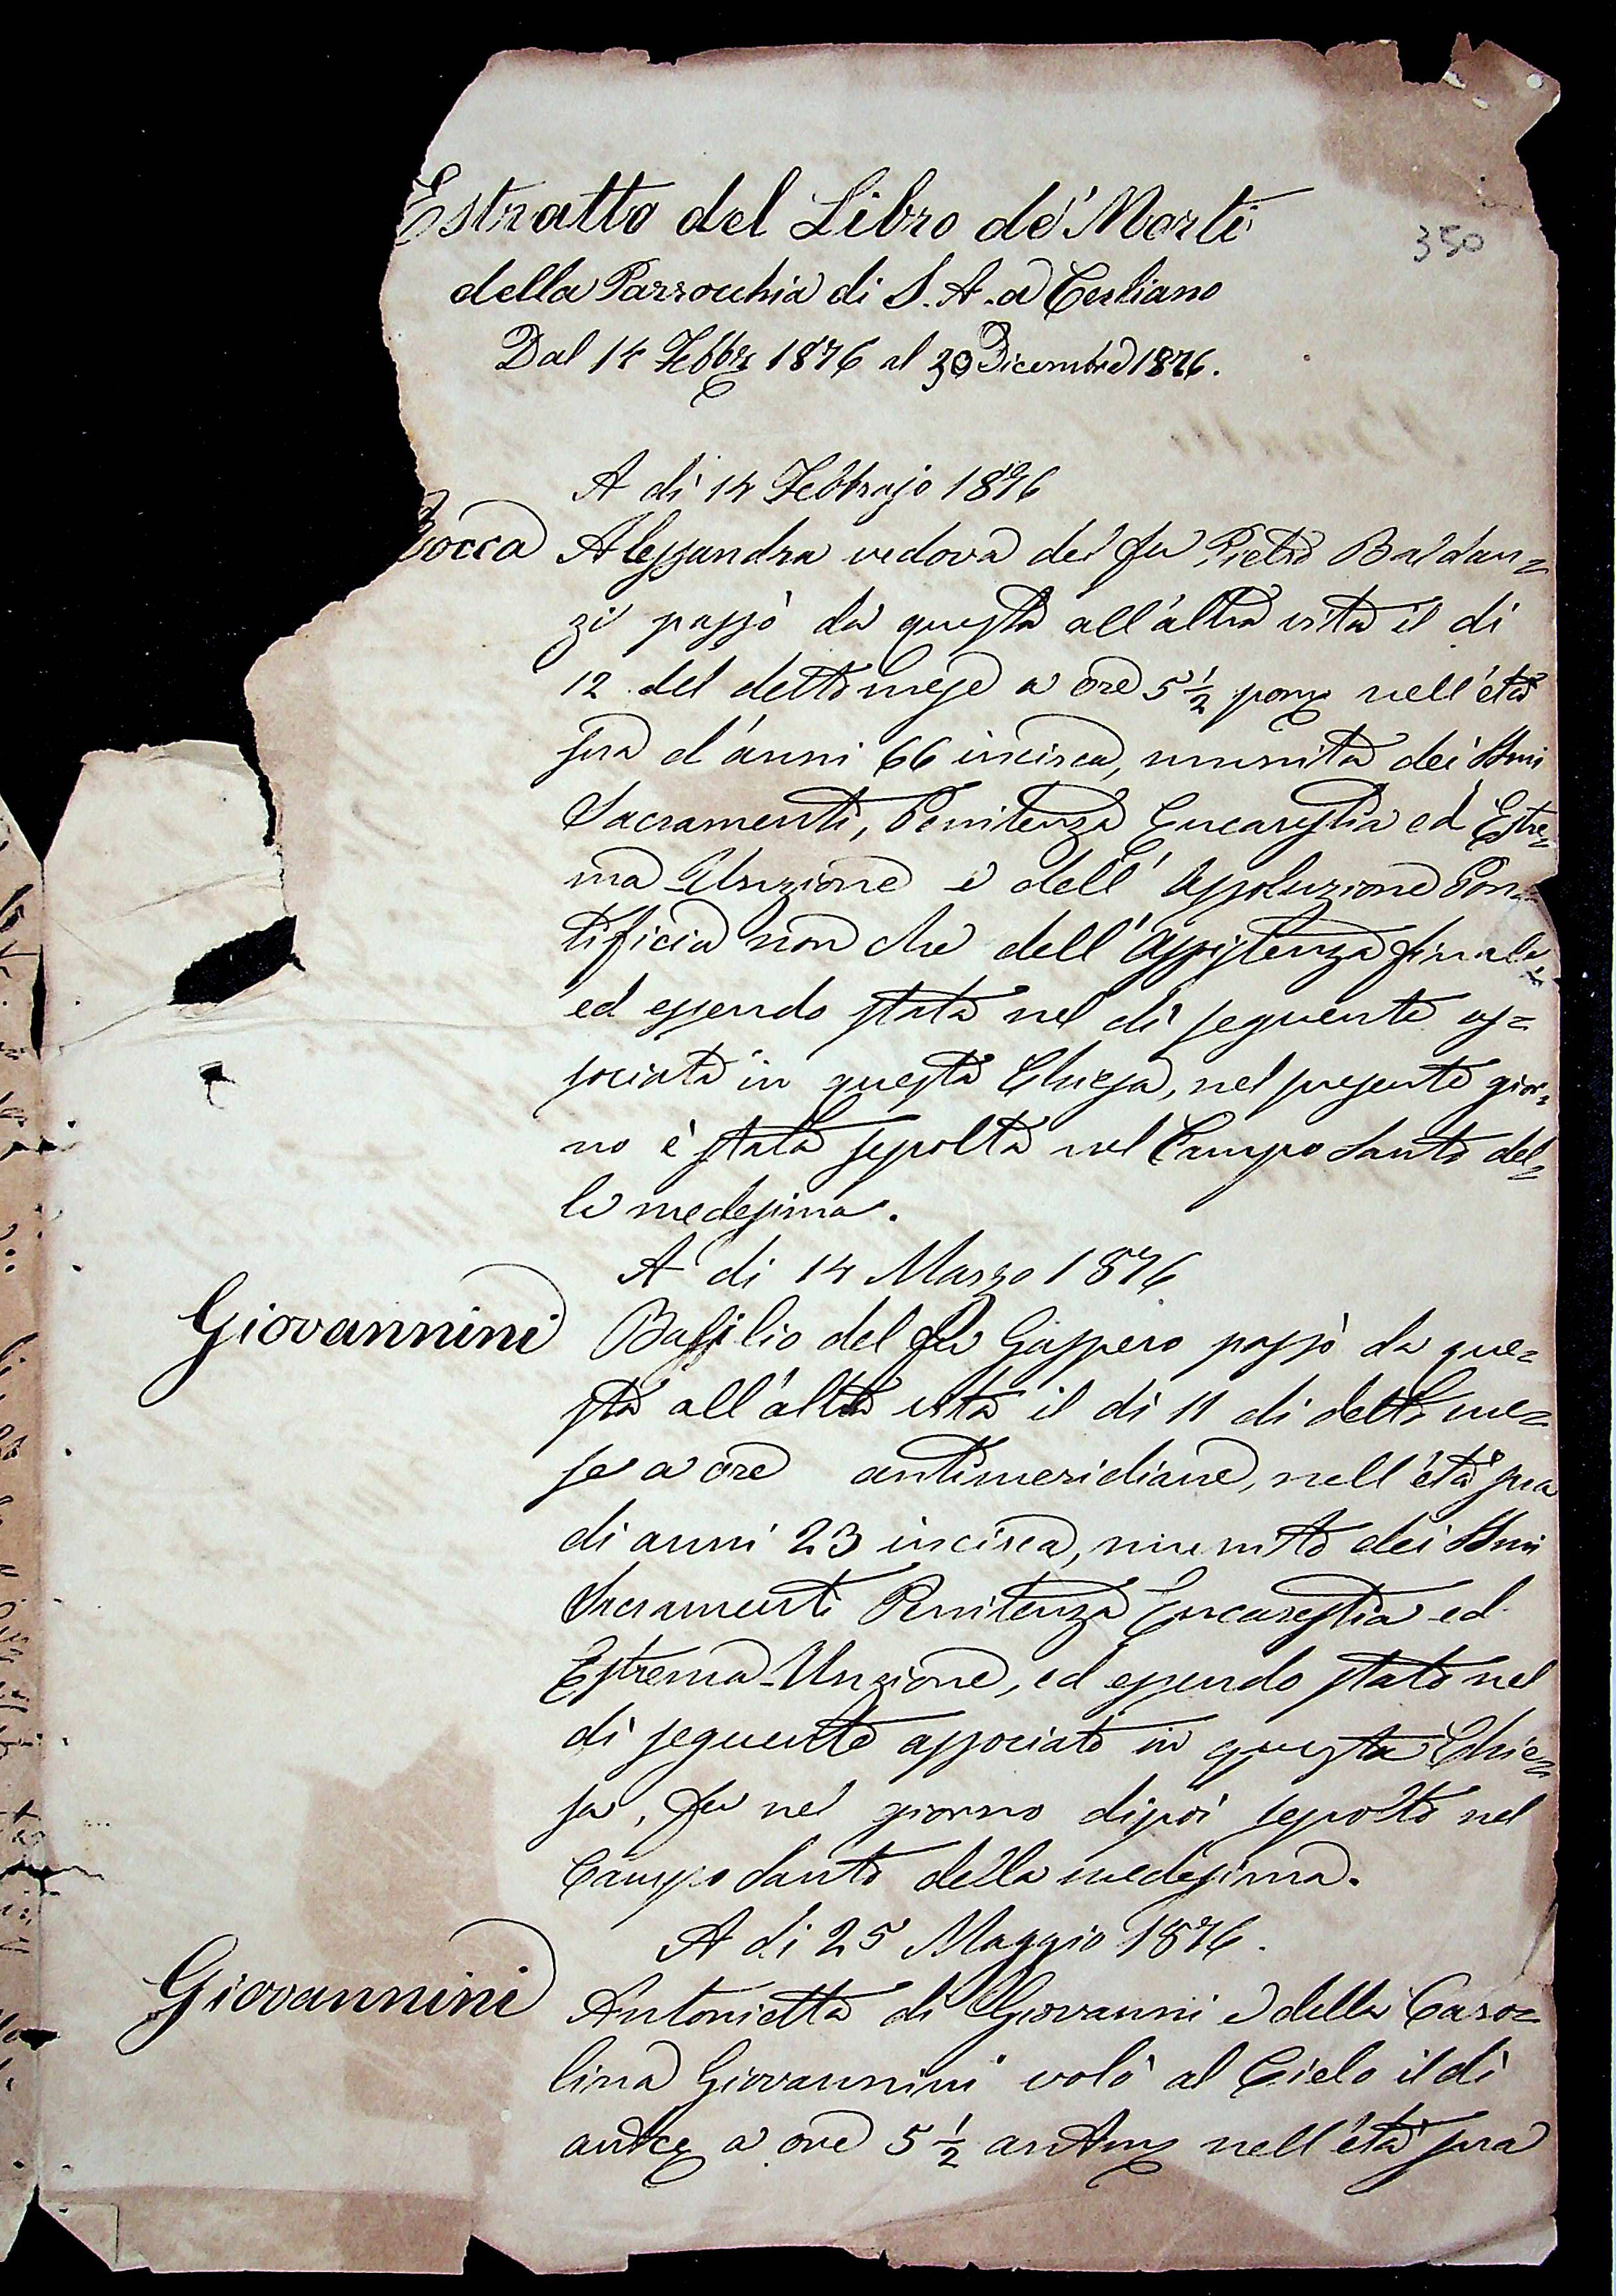 350
Estratto del Libro de' Morti
della Parrocchia di S. A. a Cerliano
Dal 14 Febbr 1876 al 30 Dicembre 1876.
A dì 14 Febbrajo 1876
Bocca Alessandra vedova del fu Pietro Baldan=
zi passò da questa all'altra vita il dì
12 del detto mese a ore 5 1/2 pom nell'età
sua d'anni 66 incirca, munita dei SSmi
Sacramenti, Penitenza Eucarestia ed Estre=
ma Unzione e dell' Assoluzione Pon=
tificia non che dell' Assistenza finale,
ed essendo stata nel dì seguente as=
sociata in questa Chiesa, nel presente gior=
no è stata sepolta nel Campo Santo del=
la medesima.
A dì 14 Marzo 1876
Giovannini Basilio del fu Gaspero passò da que=
sta all'altra vita il dì 11 di detto me=
se a ore antimeridiane, nell'età sua
di anni 23 incirca, munito dei SSmi
Sacramenti Penitenza Eucarestia ed
Estrema-Unzione, ed essendo stato nel
dì seguente associato in questa Chie=
sa, fu nel giorno dipoi sepolto nel
Campo Santo della medesima.
A dì 25 Maggio 1876.
Giovannini Antonietta di Giovanni e della Caro=
lina Giovannini volò al Cielo il dì
antce a ore 5 1/2 antm nell'età sua